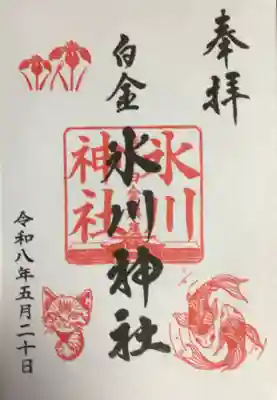 奉拝
白金
氷川神社
氷川
神社
令和八年五月二十日